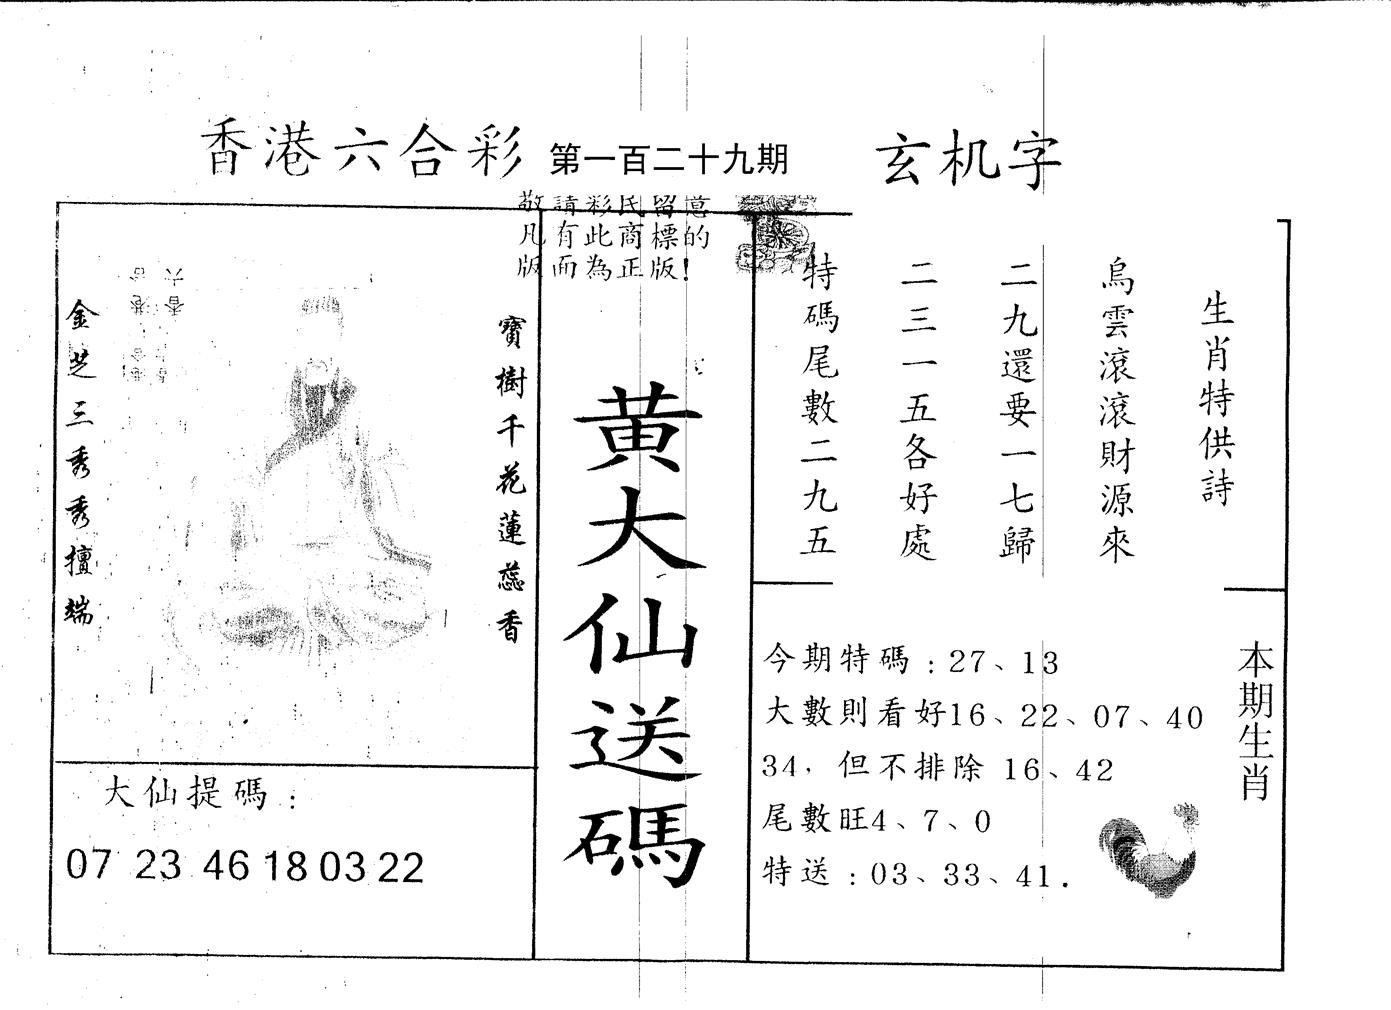 香港六合彩 第一百二十九期 玄机字
敬請彩民留意
凡有此商標的
版面為正版!
金芝三秀秀擅端
寶樹千花蓮蕊香
黄大仙送碼
生肖特供詩
烏雲滾滾財源來
二九還要一七歸
二三一五各好處
特碼尾數二九五
大仙提碼:
07 23 46 18 03 22
今期特碼:27、13
大數則看好16、22、07、40
34,但不排除 16、42
尾數旺4、7、0
特送:03、33、41.
本期生肖